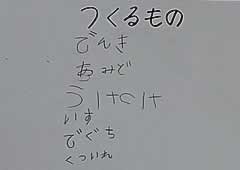 つくるもの
でんき
あみど
うけつけ
いす
でぐち
くついれ